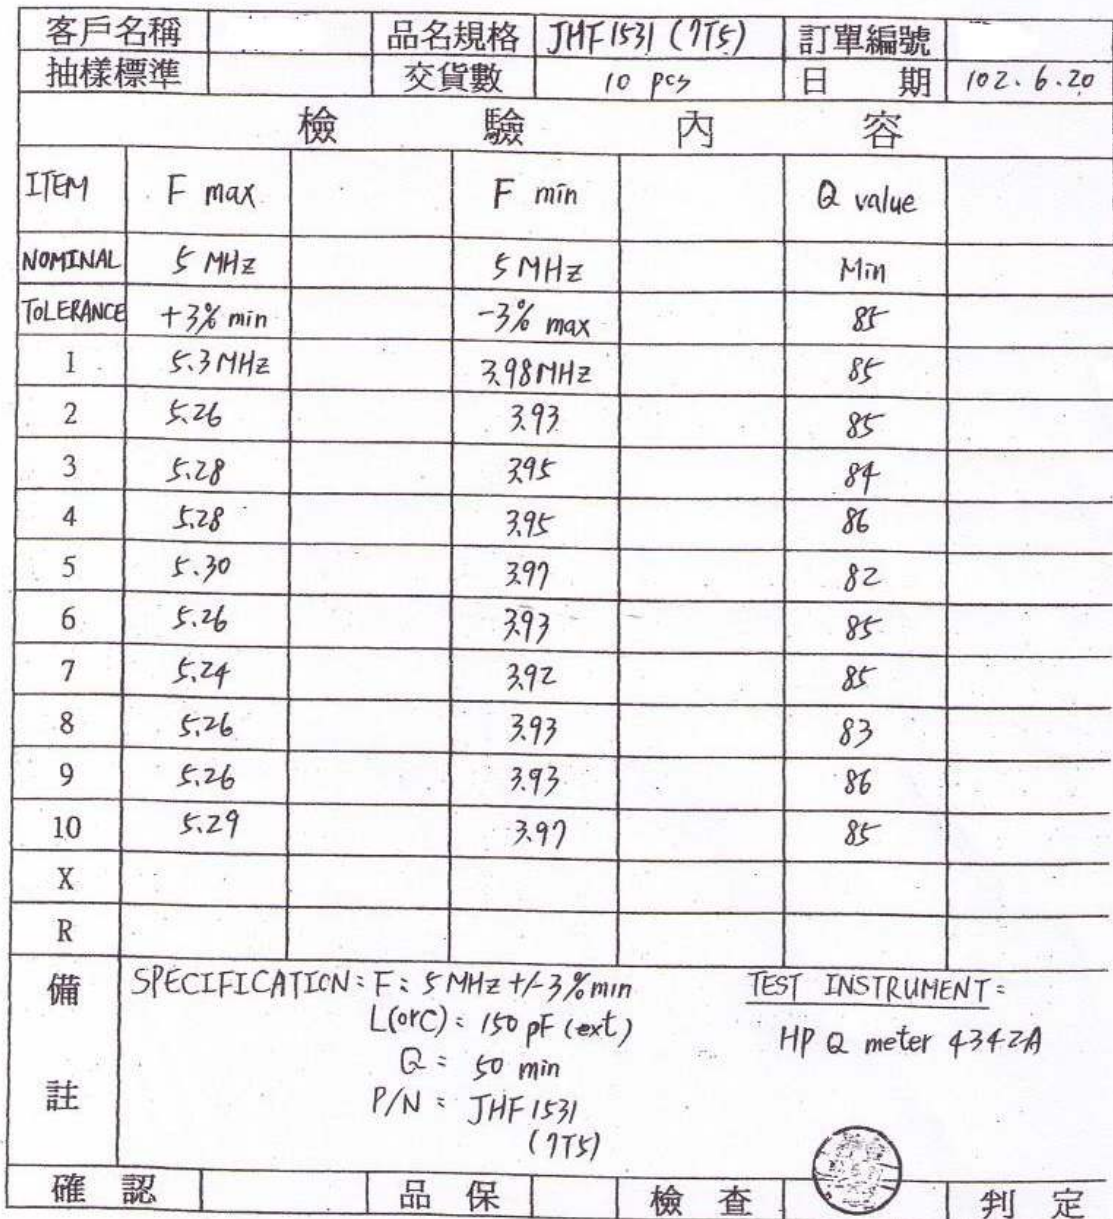 客戶名稱 品名規格 JHF1531 (7T5) 訂單編號
抽樣標準 交貨數 10 pcs 日 期 102.6.20
檢 驗 內 容
ITEM F max F min Q value
NOMINAL 5 MHz 5 MHz Min
TOLERANCE +3% min -3% max 85
1 5.3 MHz 3.98 MHz 85
2 5.26 3.93 85
3 5.28 3.95 84
4 5.28 3.95 86
5 5.30 3.97 82
6 5.26 3.93 85
7 5.24 3.92 85
8 5.26 3.93 83
9 5.26 3.93 86
10 5.29 3.97 85
X
R
備註
SPECIFICATION: F: 5 MHz +/-3% min
L(orC): 150 pF (ext)
Q: 50 min
P/N: JHF1531
(7T5)
TEST INSTRUMENT:
HP Q meter 4342A
確 認 品 保 檢 查 判 定